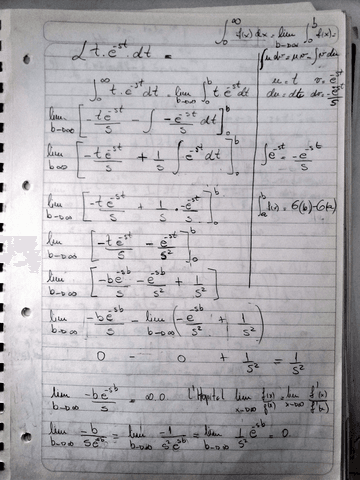 ∫₀^∞ f(x) dx = lim_{b→∞} ∫₀^b f(x) =
ℒ t · e^{-st} · dt =
∫ u dv = u v - ∫ v du
∫₀^∞ t · e^{-st} dt = lim_{b→∞} ∫₀^b t e^{-st} dt
u = t
du = dt
lim_{b→∞} [ -t e^{-st}/s - ∫ -e^{-st}/s dt ]₀^b
lim_{b→∞} [ -t e^{-st}/s + 1/s ∫ e^{-st} dt ]₀^b
∫ e^{-st} = -e^{-st}/s
lim_{b→∞} [ -t e^{-st}/s + 1/s · -e^{-st}/s ]₀^b
= G(b) - G(a)
lim_{b→∞} [ -t e^{-st}/s - e^{-st}/s² ]₀^b
lim_{b→∞} [ -b e^{-sb}/s - e^{-sb}/s² + 1/s² ]
lim_{b→∞} -b e^{-sb}/s - lim_{b→∞} ( -e^{-sb}/s² + 1/s² )
0 - 0 + 1/s² = 1/s²
lim_{b→∞} -b e^{-sb}/s = ∞.0 L'Hopital lim_{x→∞} f(x)/g(x) = lim_{x→∞}
lim_{b→∞} -b/s e^{sb} = lim_{b→∞} -1/s² e^{sb} = lim_{b→∞} 1/s² e^{-sb} = 0